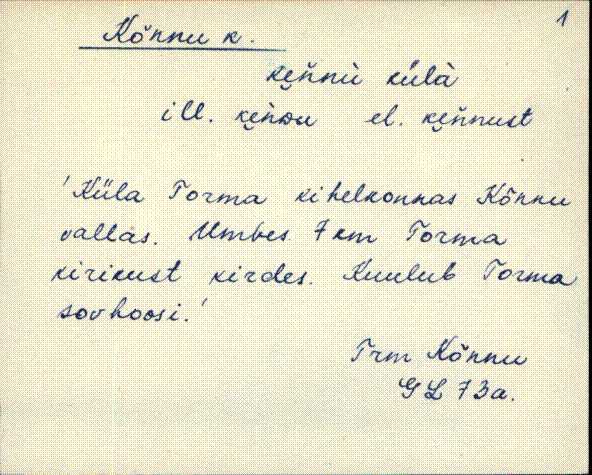 1
Kõnnu k.
ke̮ǹnù külà
ill. ke̮ǹnu el. ke̮ǹnust
'Küla Torma kihelkonnas Kõnnu
vallas. Umbes 7 km Torma
kirikust kirdes. Kuulub Torma
sovhoosi.'
Trm Kõnnu
GL 73a.